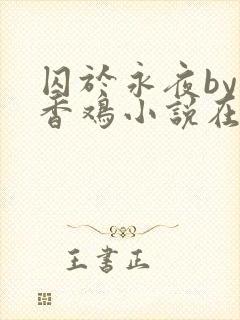 囚於永夜by
香鸡小説在
王書正